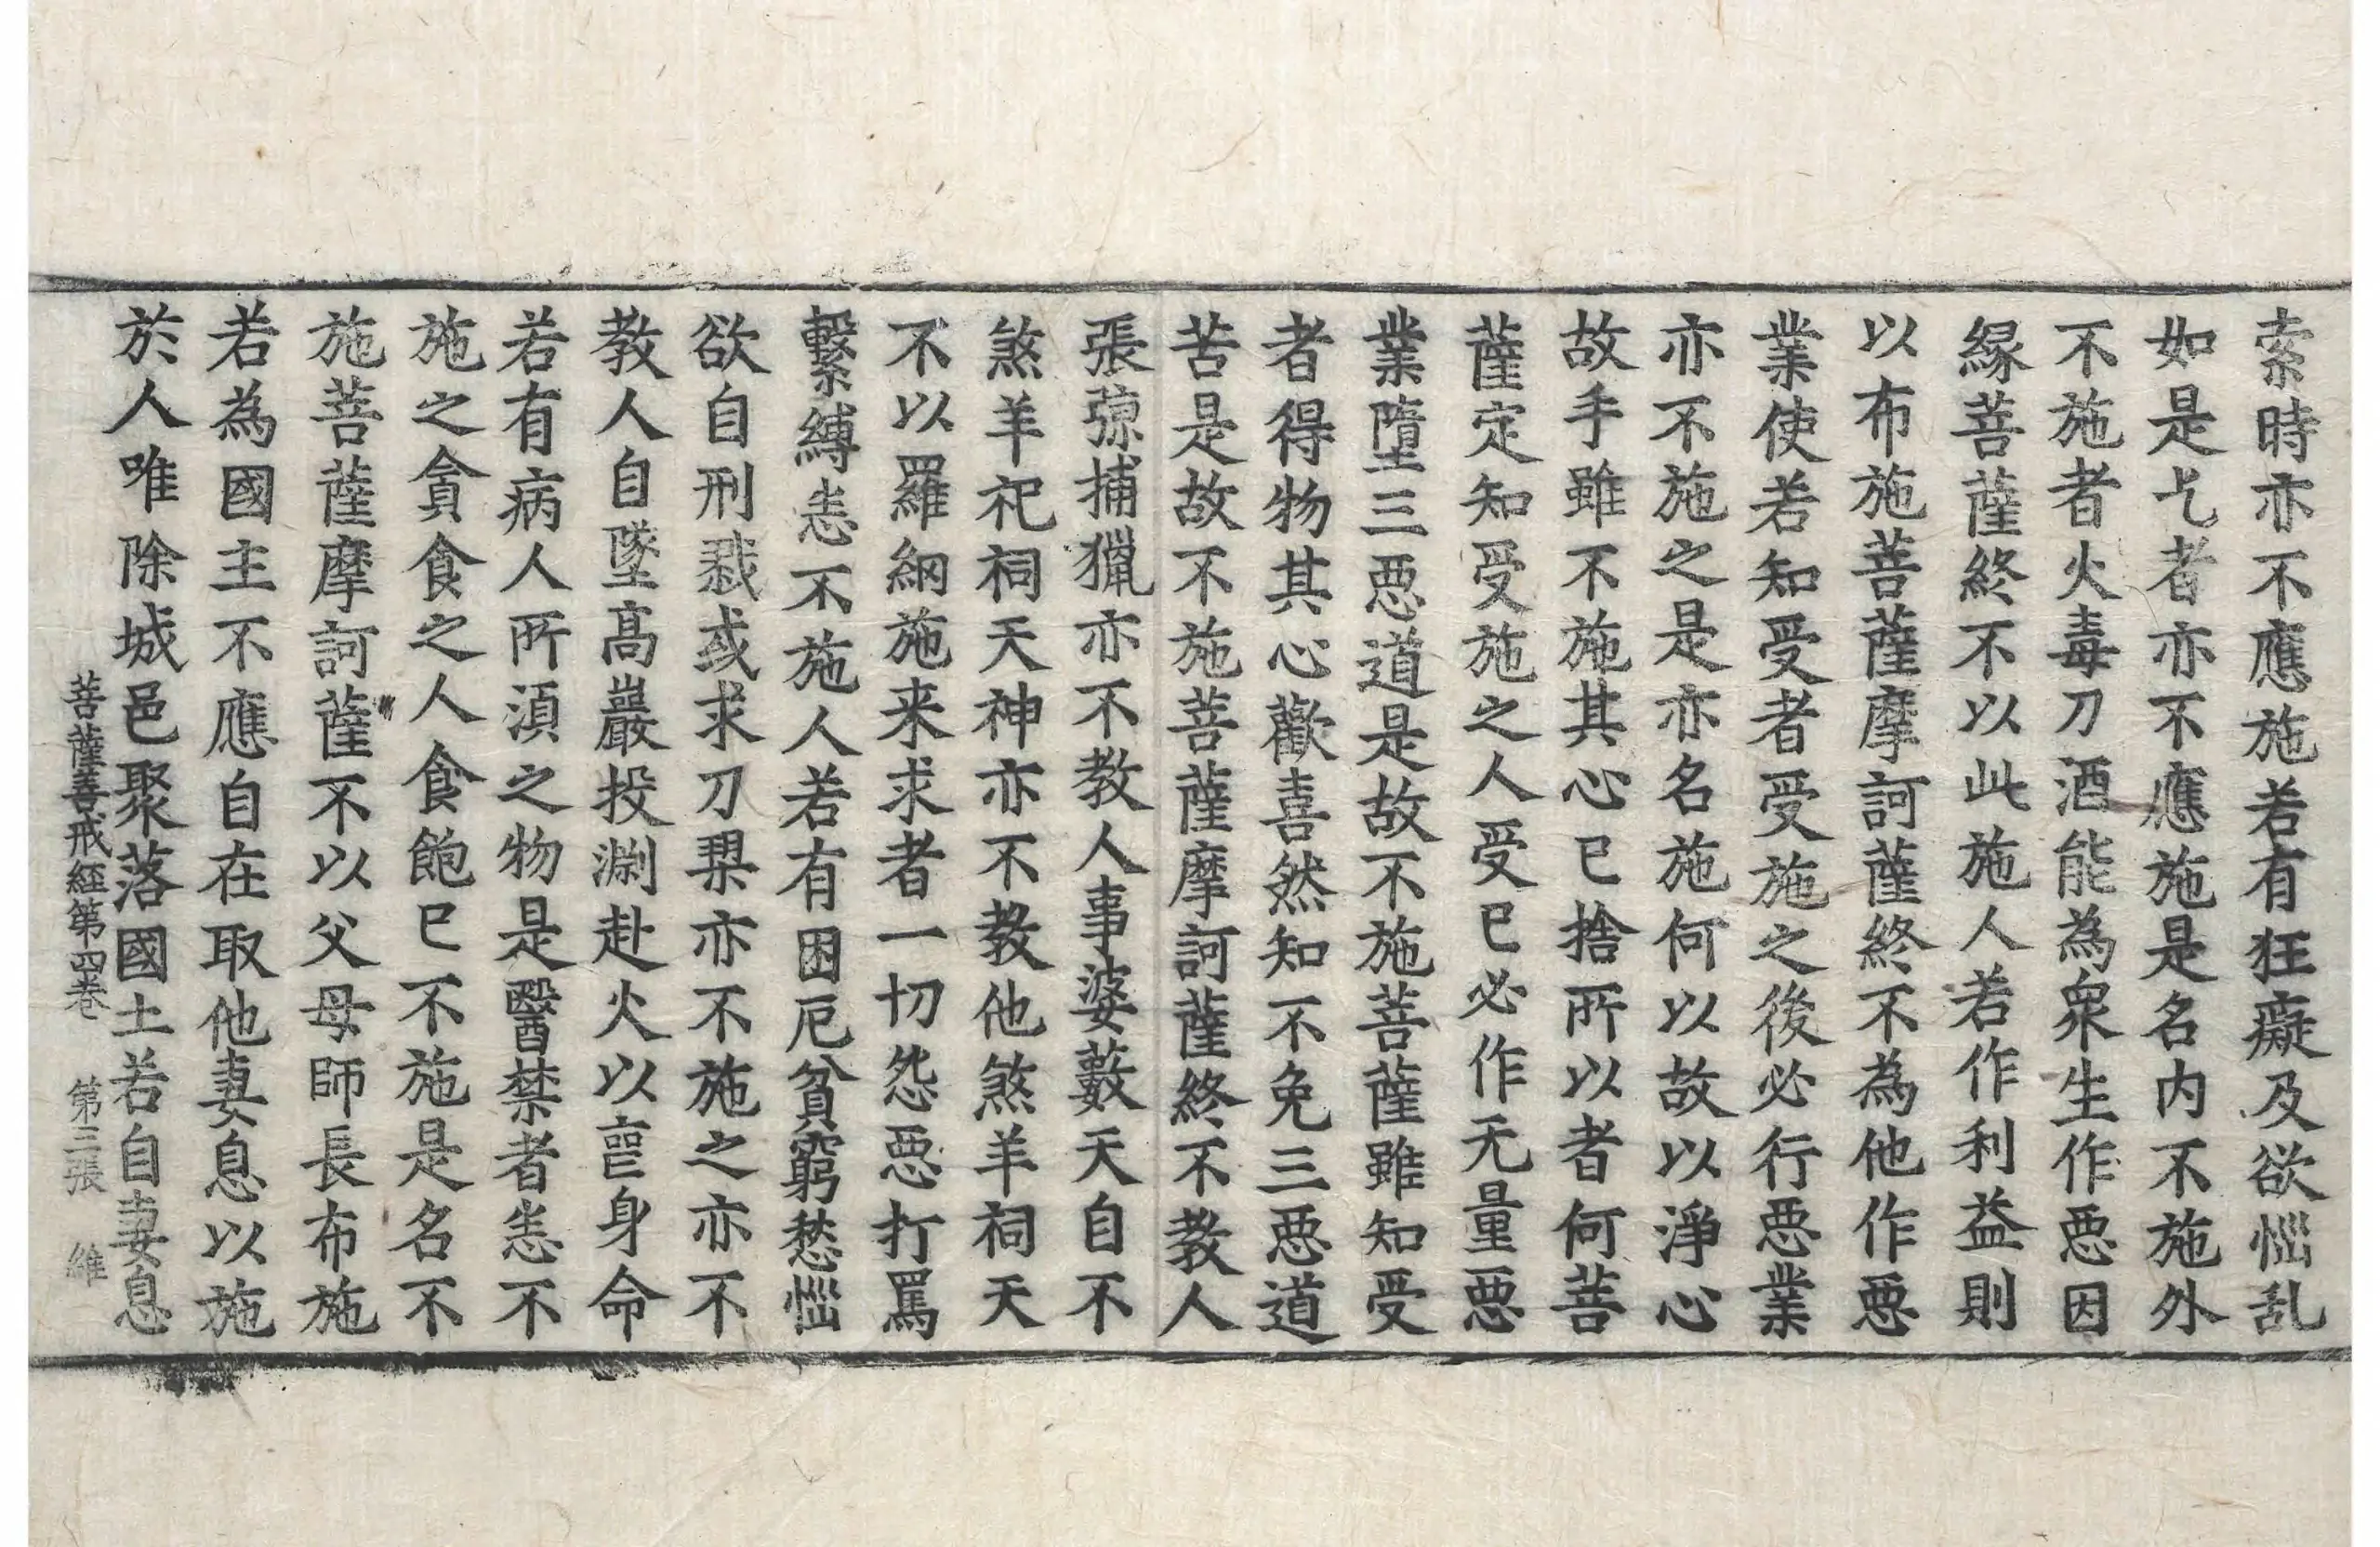 索時亦不應施若有狂癡及欲惱乱
如是乞者亦不應施是名内不施外
不施者火毒刀酒能為衆生作惡因
緣菩薩終不以此施人若作利益則
以布施菩薩摩訶薩終不為他作惡
業使若知受者受施之後必行惡業
亦不施之是亦名施何以故以淨心
故手雖不施其心已捨所以者何菩
薩定知受施之人受已必作无量惡
業墮三惡道是故不施菩薩雖知受
者得物其心歡喜然知不免三惡道
苦是故不施菩薩摩訶薩終不教人
張弶捕獵亦不教人事婆藪天自不
煞羊祀祠天神亦不教他煞羊祠天
不以羅網施来求者一切怨惡打罵
繫縛恚不施人若有困厄貧窮愁惱
欲自刑戮或求刀槊亦不施之亦不
教人自墜髙巖投渊赴火以亡身命
若有病人所湏之物是醫禁者恚不
施之貪食之人食飽已不施是名不
施菩薩摩訶薩不以父母師長布施
若為國主不應自在取他妻息以施
於人唯除城邑聚落國土若自妻息
菩薩善戒經第四卷 第三張 維